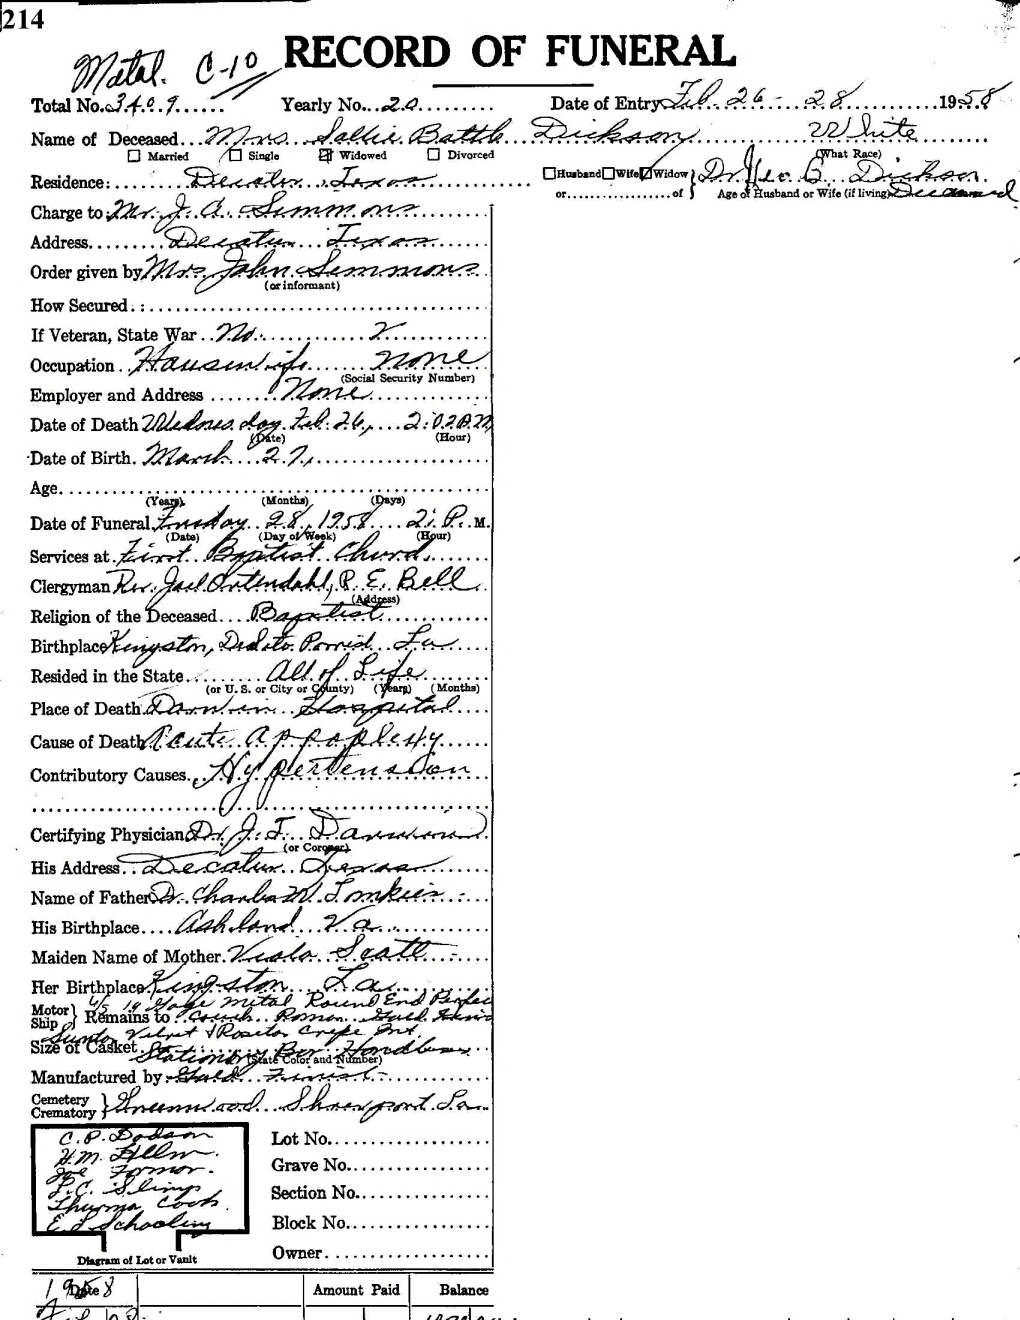 214
RECORD OF FUNERAL
Metal. C-10
Total No. 3409 Yearly No. 20 Date of Entry Feb. 26 - 28 1958
Name of Deceased Mrs. Sallie Battle Dickson White
Married Single Widowed Divorced (What Race)
Residence: Decatur, Texas Husband Wife Widow } Dr. Geo. B. Dickson
or of } Age of Husband or Wife (if living) Deceased
Charge to Mr. J. A. Simmons
Address Decatur Texas
Order given by Mrs. John Simmons
(or informant)
How Secured :
If Veteran, State War No.
Occupation Housewife None
(Social Security Number)
Employer and Address None
Date of Death Wednesday Feb. 26, 2:02 P.M.
(Date) (Hour)
Date of Birth March 27,
Age
(Years) (Months) (Days)
Date of Funeral Friday 28, 1958 2: P. M.
(Date) (Day of Week) (Hour)
Services at First Baptist Church
Clergyman Rev. Joel Ortendahl, R. E. Bell
(Address)
Religion of the Deceased Baptist
Birthplace Kingston, DeSoto Parrish La
Resided in the State All of Life
(or U. S. or City or County) (Years) (Months)
Place of Death Hospital
Cause of Death Acute appoplexy
Contributory Causes Hypertension
Certifying Physician Dr. J. T.
(or Coroner)
His Address Decatur Texas
Name of Father Dr. Charles W. Tomkies
His Birthplace Ashland Va
Maiden Name of Mother Viola Scott
Her Birthplace Kingston La.
19 Gage Metal Round End Perfec
Motor Ship } Remains to of Couch Roman Gold Finis
Velvet & Rosita Crepe Int
Size of Casket Stationary Bar Handles
(State Color and Number)
Manufactured by Gold Finish
Cemetery Crematory } Greenwood Shreveport La.
C. P. Dodson
H. M.
Joe
L. C. Slimp
Thurma Cook
E. L. Schooling
Diagram of Lot or Vault
Lot No.
Grave No.
Section No.
Block No.
Owner
1958 Date Amount Paid Balance